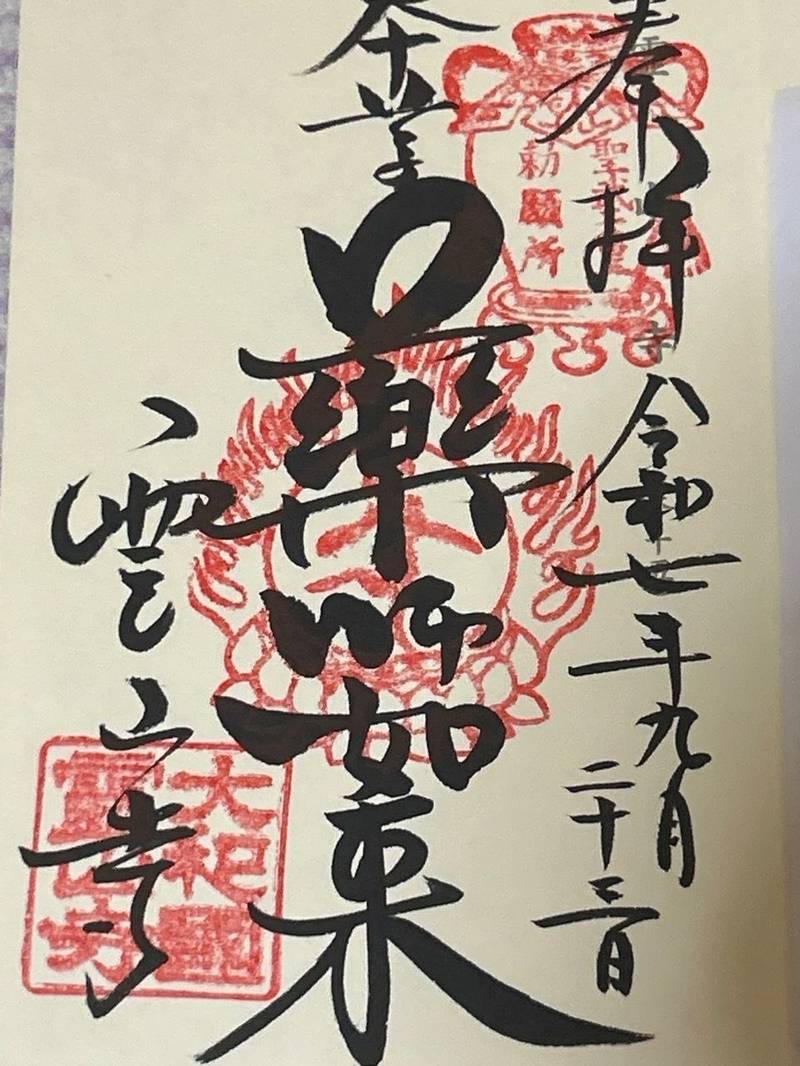 奉拝
令和七年九月
二十三日
聖武天皇
勅願所
薬師如来
霊山寺
大和國
霊山寺